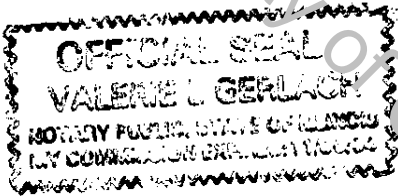 OFFICIAL SEAL
VALERIE L GERLACH
NOTARY PUBLIC, STATE OF ILLINOIS
MY COMMISSION
of